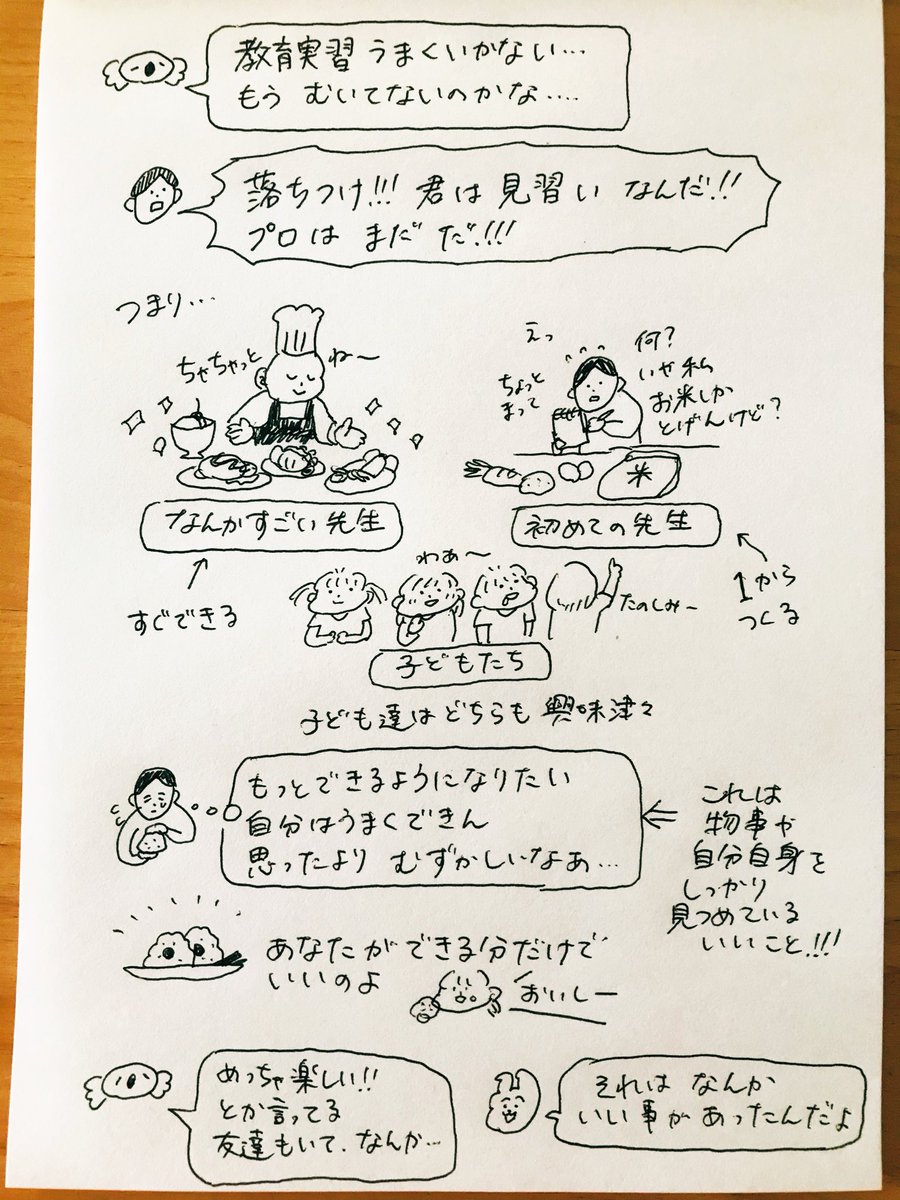 教育実習 うまくいかない…
もう むいてないのかな‥‥
落ちつけ!!! 君は 見習い なんだ!!
プロは まだ だ!!!
つまり…
ちゃちゃっと
ね〜
えっ
ちょっと
まって
何?
いや私
お米しか
とげんけど?
米
なんかすごい先生
初めての先生
すぐできる
わぁ〜
たのしみ〜
1から
つくる
子どもたち
子ども達はどちらも 興味津々
もっとできるようになりたい
自分はうまくできん
思ったより むずかしいなぁ…
これは
物事や
自分自身を
しっかり
見つめている
いいこと!!!
あなたができる分だけで
いいのよ
おいしー
めっちゃ楽しい!!
とか言ってる
友達もいて、なんか…
それは なんか
いい事があったんだよ